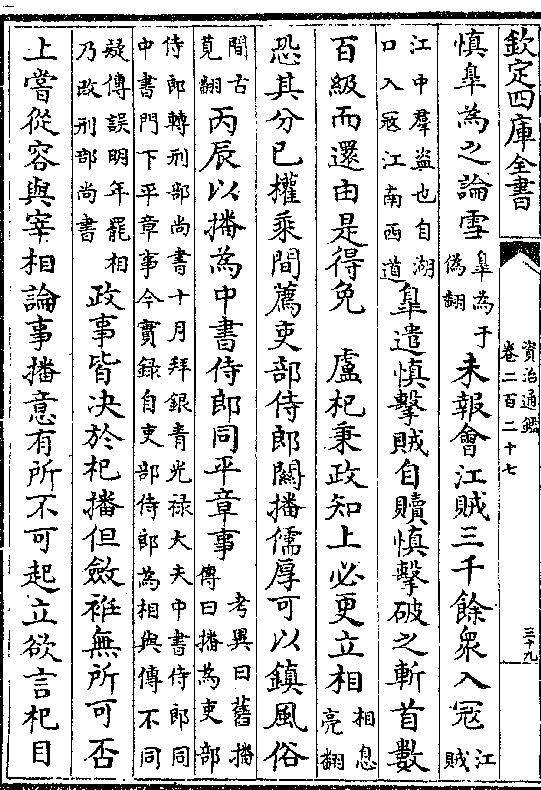 欽定四庫全書
資治通鑑
卷二百二十七
三十九
慎臯為之論雪臯為于偽翻未報會江賊三千餘衆入冦江賊
江中羣盗也自湖口入冦江南西道臯遣慎擊賊自贖慎擊破之斬首數
百級而還由是得免　盧杞秉政知上必更立相相息亮翻
恐其分已權乘間薦吏部侍郎關播儒厚可以鎮風俗
間古莧翻丙辰以播為中書侍郎同平章事考異曰舊播傳曰播為吏部
侍郎轉刑部尚書十月拜銀青光禄大夫中書侍郎同中書門下平章事今實録自吏部侍郎為相與傳不同
疑傳誤明年罷相乃改刑部尚書政事皆决於杞播但斂袵無所可否
上嘗從容與宰相論事播意有所不可起立欲言杞目